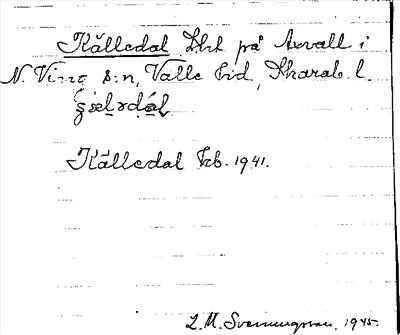 Källedal Lht på Axvall i
N. Ving s:n, Valle hd, Skarab. l.
Källedal Kb. 1941.
L. M. Svenungsson. 1945.